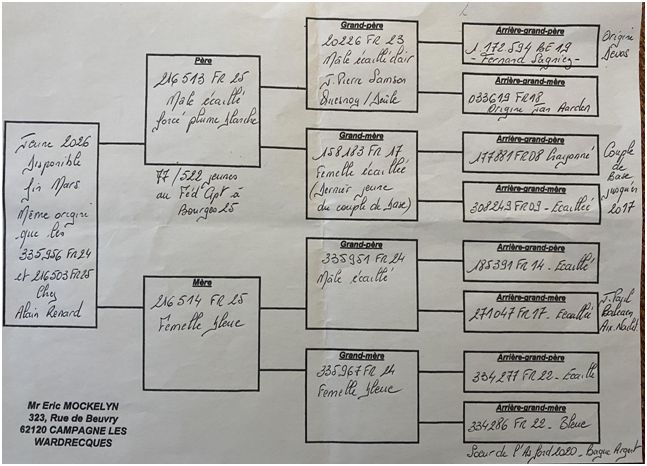 Jeune 2026
Disponible
fin Mars
Même origine
que les
335956 FR 24
et 216503 FR 25
Chez
Alain Renard
Père
216513 FR 25
Mâle écaillé
foncé plume blanche
77/522 jeunes
au Féd Gpt à
Bourges 25
Mère
216514 FR 25
Femelle bleue
Grand-père
20226 FR 23
Mâle écaillé clair
J. Pierre Samson
Quesnoy / Deûle
Grand-mère
158183 FR 17
Femelle écaillée
(Dernier jeune
du couple de base)
Grand-père
335951 FR 24
Mâle écaillé
Grand-mère
335967 FR 24
Femelle bleue
Arrière-grand-père
1.172.594 BE 19
- Fernand Sagniez -
Origine
Devos
Arrière-grand-mère
033619 FR 18
Origine Jan Aarden
Arrière-grand-père
177881 FR 08 Crayonné
Arrière-grand-mère
308249 FR 09 - Ecaillée
Couple
de
Base
Jusqu'en
2017
Arrière-grand-père
185391 FR 14 - Ecaillé
Arrière-grand-mère
271047 FR 17 - Ecaillée
J. Paul
Arrière-grand-père
334277 FR 22 - Ecaillé
Arrière-grand-mère
334286 FR 22 - Bleue
Soeur de l'As fond 2020 - Bague Argent
Mr Eric MOCKELYN
323, Rue de Beuvry
62120 CAMPAGNE LES
WARDRECQUES